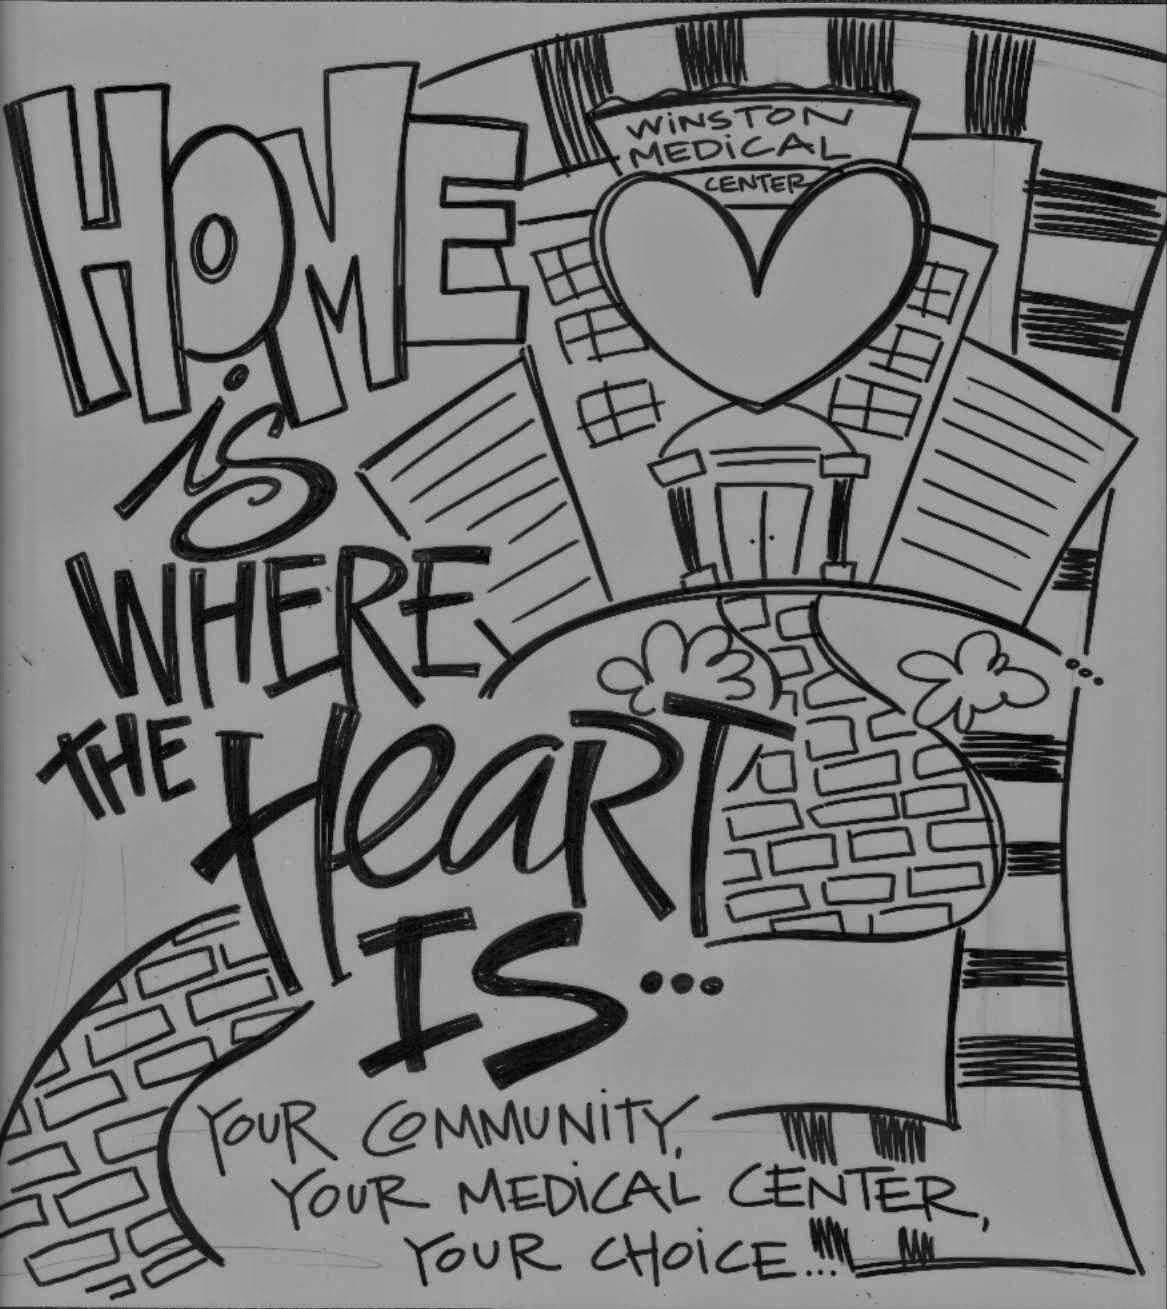 WiNSTON
MEDiCAL
CENTER
HOME
is
WHERE
THE HeaRT
IS...
YOUR COMMUNiTY,
YOUR MEDiCAL CENTER,
YOUR CHOiCE...